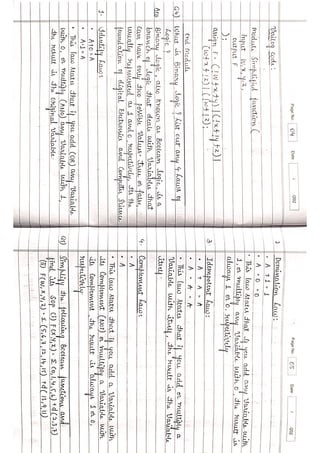 Page No. 04 Date
Verilog Code:
module Simplified_function (
input w,x,y,z,
output f
);
assign f =
end module
Q4) What is Binary Logic? List out any 4 laws of Logic?
Ans Binary logic, also known as Boolean logic, is a
branch of logic that deals with variables that
can have only two possible values: True or False,
usually represented as 1 and 0, respectively. It's the
foundation of digital Electronics and Computer Science
1. Identity law:
• A+0 = A
• A·1 = A
• This law states that if you add (OR) any Variable
with 0, or multiply (AND) any Variable with 1,
the result is the original Variable.
Page No. 05 Date
2. Domination law:
• A + 1 = 1
• A · 0 = 0
• This law states that if you add any Variable with
1 or multiply any Variable with 0, the result is
always 1 or 0, respectively
3. Idempotent law:
• A + A = A
• A · A = A
• This law states that if you add or multiply a
Variable with itself, the result is the Variable
itself.
4. Complement law:
• A
• A
• This law states that if you add a Variable with
its complement (NOT) or multiply a Variable with
its complement, the result is always 1 or 0,
respectively
Q) Simplify the following Boolean function and
find its